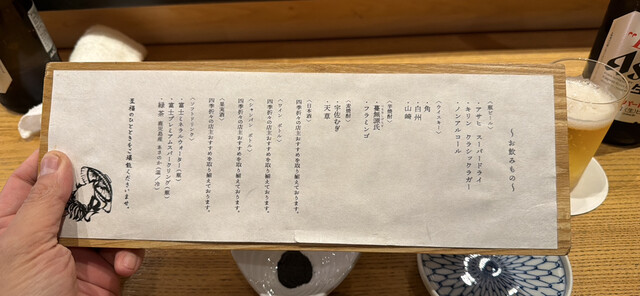 ～お飲みもの～
〈瓶ビール〉
・アサヒ スーパードライ
・キリン クラシックラガー
・ノンアルコール
〈ウイスキー〉
・角
・白州
・山崎
〈芋焼酎〉
・蔓無源氏
・フラミンゴ
〈麦焼酎〉
・宇佐むぎ
・天草
〈日本酒〉
四季折々の店主おすすめを取り揃えております。
〈ワイン ボトル〉
四季折々の店主おすすめを取り揃えております。
〈シャンパン ボトル〉
四季折々の店主おすすめを取り揃えております。
〈果実酒〉
四季折々の店主おすすめを取り揃えております。
〈ソフトドリンク〉
・富士ミネラルウォーター(瓶)
・富士プレミアムスパークリング(瓶)
・緑茶 鹿児島県 あさのか(温／冷)
至福のひとときをご堪能くださいませ。